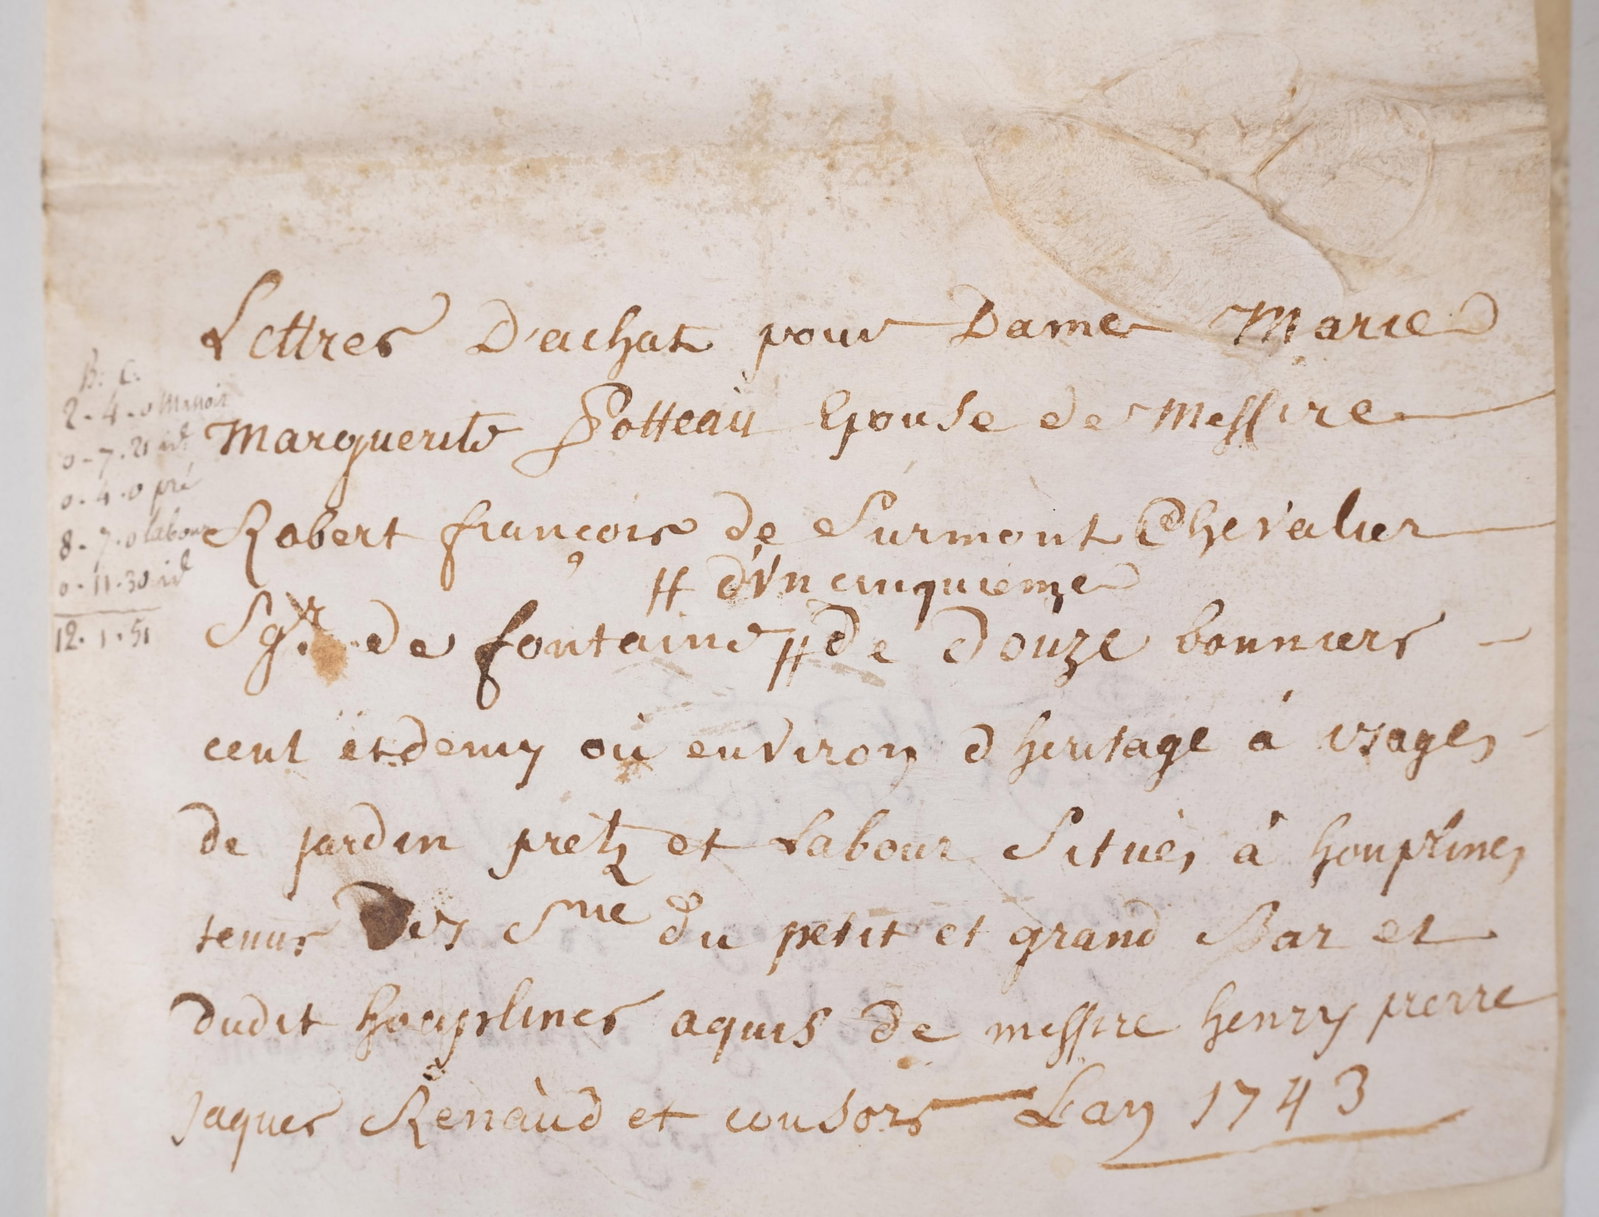 B. C.
2 - 4 - 0 Manoir
0 - 7 - 21 id
0 - 4 - 0 pré
8 - 7 - 0 labour
0 - 11 - 30 id
12 - 1 - 51
Lettres D'achat pour Dame Marie
Marguerite Potteau Epouse de Messire
Robert françois de Surmont Chevalier
# d'Vn cinquieme
Sgr. de fontaine # de douze bonniers
cent et demy ou environ d heritage à usages
de jardin pretz et Labour Situés à houplines
tenus des Srie du petit et grand Bar et
dudit houplines aquis de messire henry pierre
jaques Renaud et consors Lan 1743